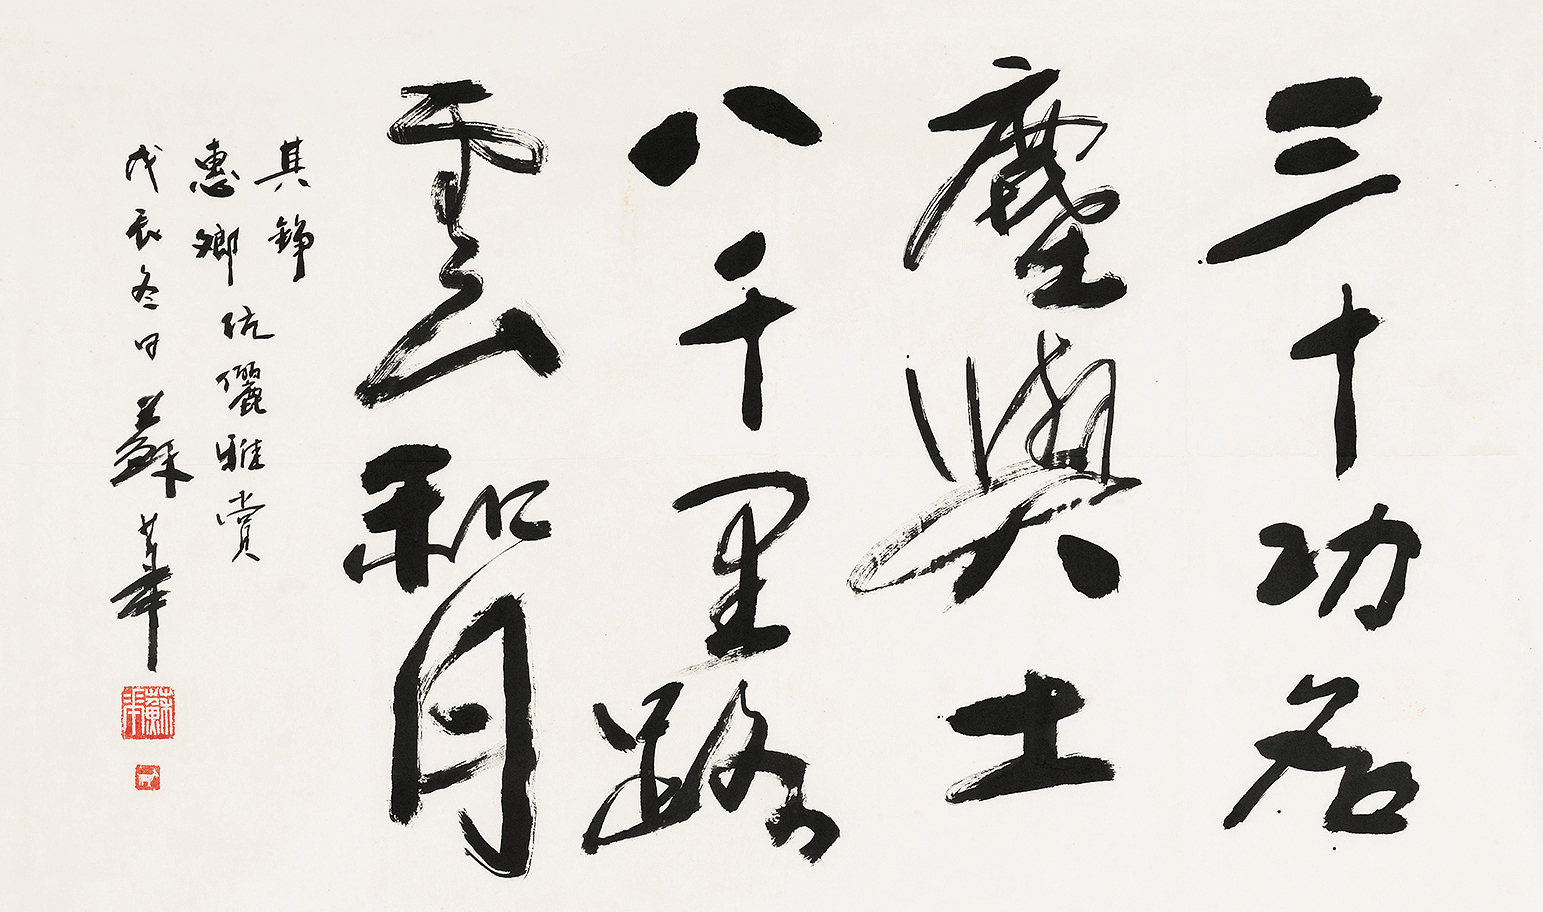 三十功名
塵與土
八千里路
雲和月
其錚
惠
伉儷雅賞
戊辰冬日蘇華
蘇華